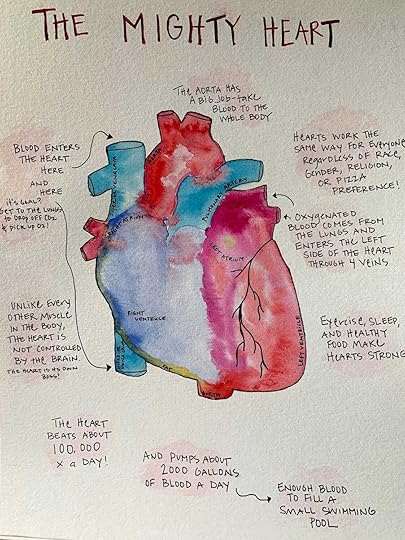 THE MIGHTY HEART
THE AORTA HAS
A BIG JOB - TAKE
BLOOD TO THE
WHOLE BODY
BLOOD ENTERS
THE HEART
HERE
AND
HERE
IT'S GOAL?
GET TO THE LUNGS
TO DROP OFF CO2
& PICK UP O2!
HEARTS WORK THE
SAME WAY FOR EVERYONE
REGARDLESS OF RACE,
GENDER, RELIGION,
OR PIZZA
PREFERENCE!
OXYGENATED
BLOOD COMES FROM
THE LUNGS AND
ENTERS THE LEFT
SIDE OF THE HEART
THROUGH 4 VEINS.
PULMONARY ARTERY
RIGHT ATRIUM
LEFT ATRIUM
RIGHT
VENTRICLE
LEFT VENTRICLE
AORTA
UNLIKE EVERY
OTHER MUSCLE
IN THE BODY,
THE HEART IS
NOT CONTROLLED
BY THE BRAIN.
THE HEART IS ITS OWN
BOSS!
Exercise, SLEEP,
AND HEALTHY
FOOD MAKE
HEARTS STRONG
THE HEART
BEATS ABOUT
100,000
x a DAY!
AND PUMPS ABOUT
2000 GALLONS
OF BLOOD A DAY
ENOUGH BLOOD
TO FILL A
SMALL SWIMMING
POOL